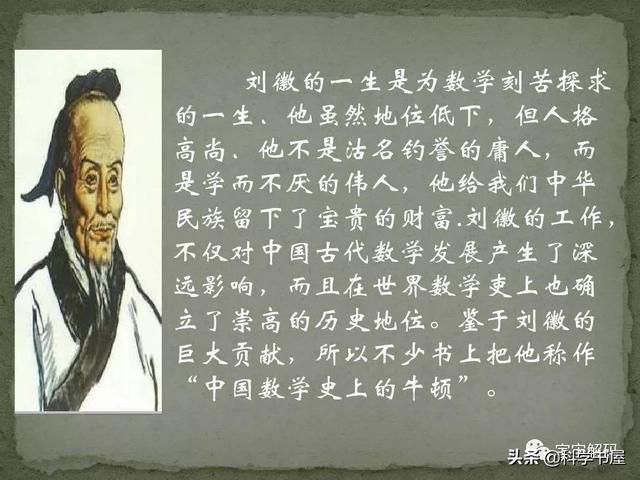 刘徽的一生是为数学刻苦探求
的一生、他虽然地位低下，但人格
高尚、他不是沽名钓誉的庸人，而
是学而不厌的伟人，他给我们中华
民族留下了宝贵的财富.刘徽的工作，
不仅对中国古代数学发展产生了深
远影响，而且在世界数学吏上也确
立了崇高的历史地位。鉴于刘徽的
巨大贡献，所以不少书上把他称作
“中国数学史上的牛顿”。
宇宙解码
头条@科学书屋